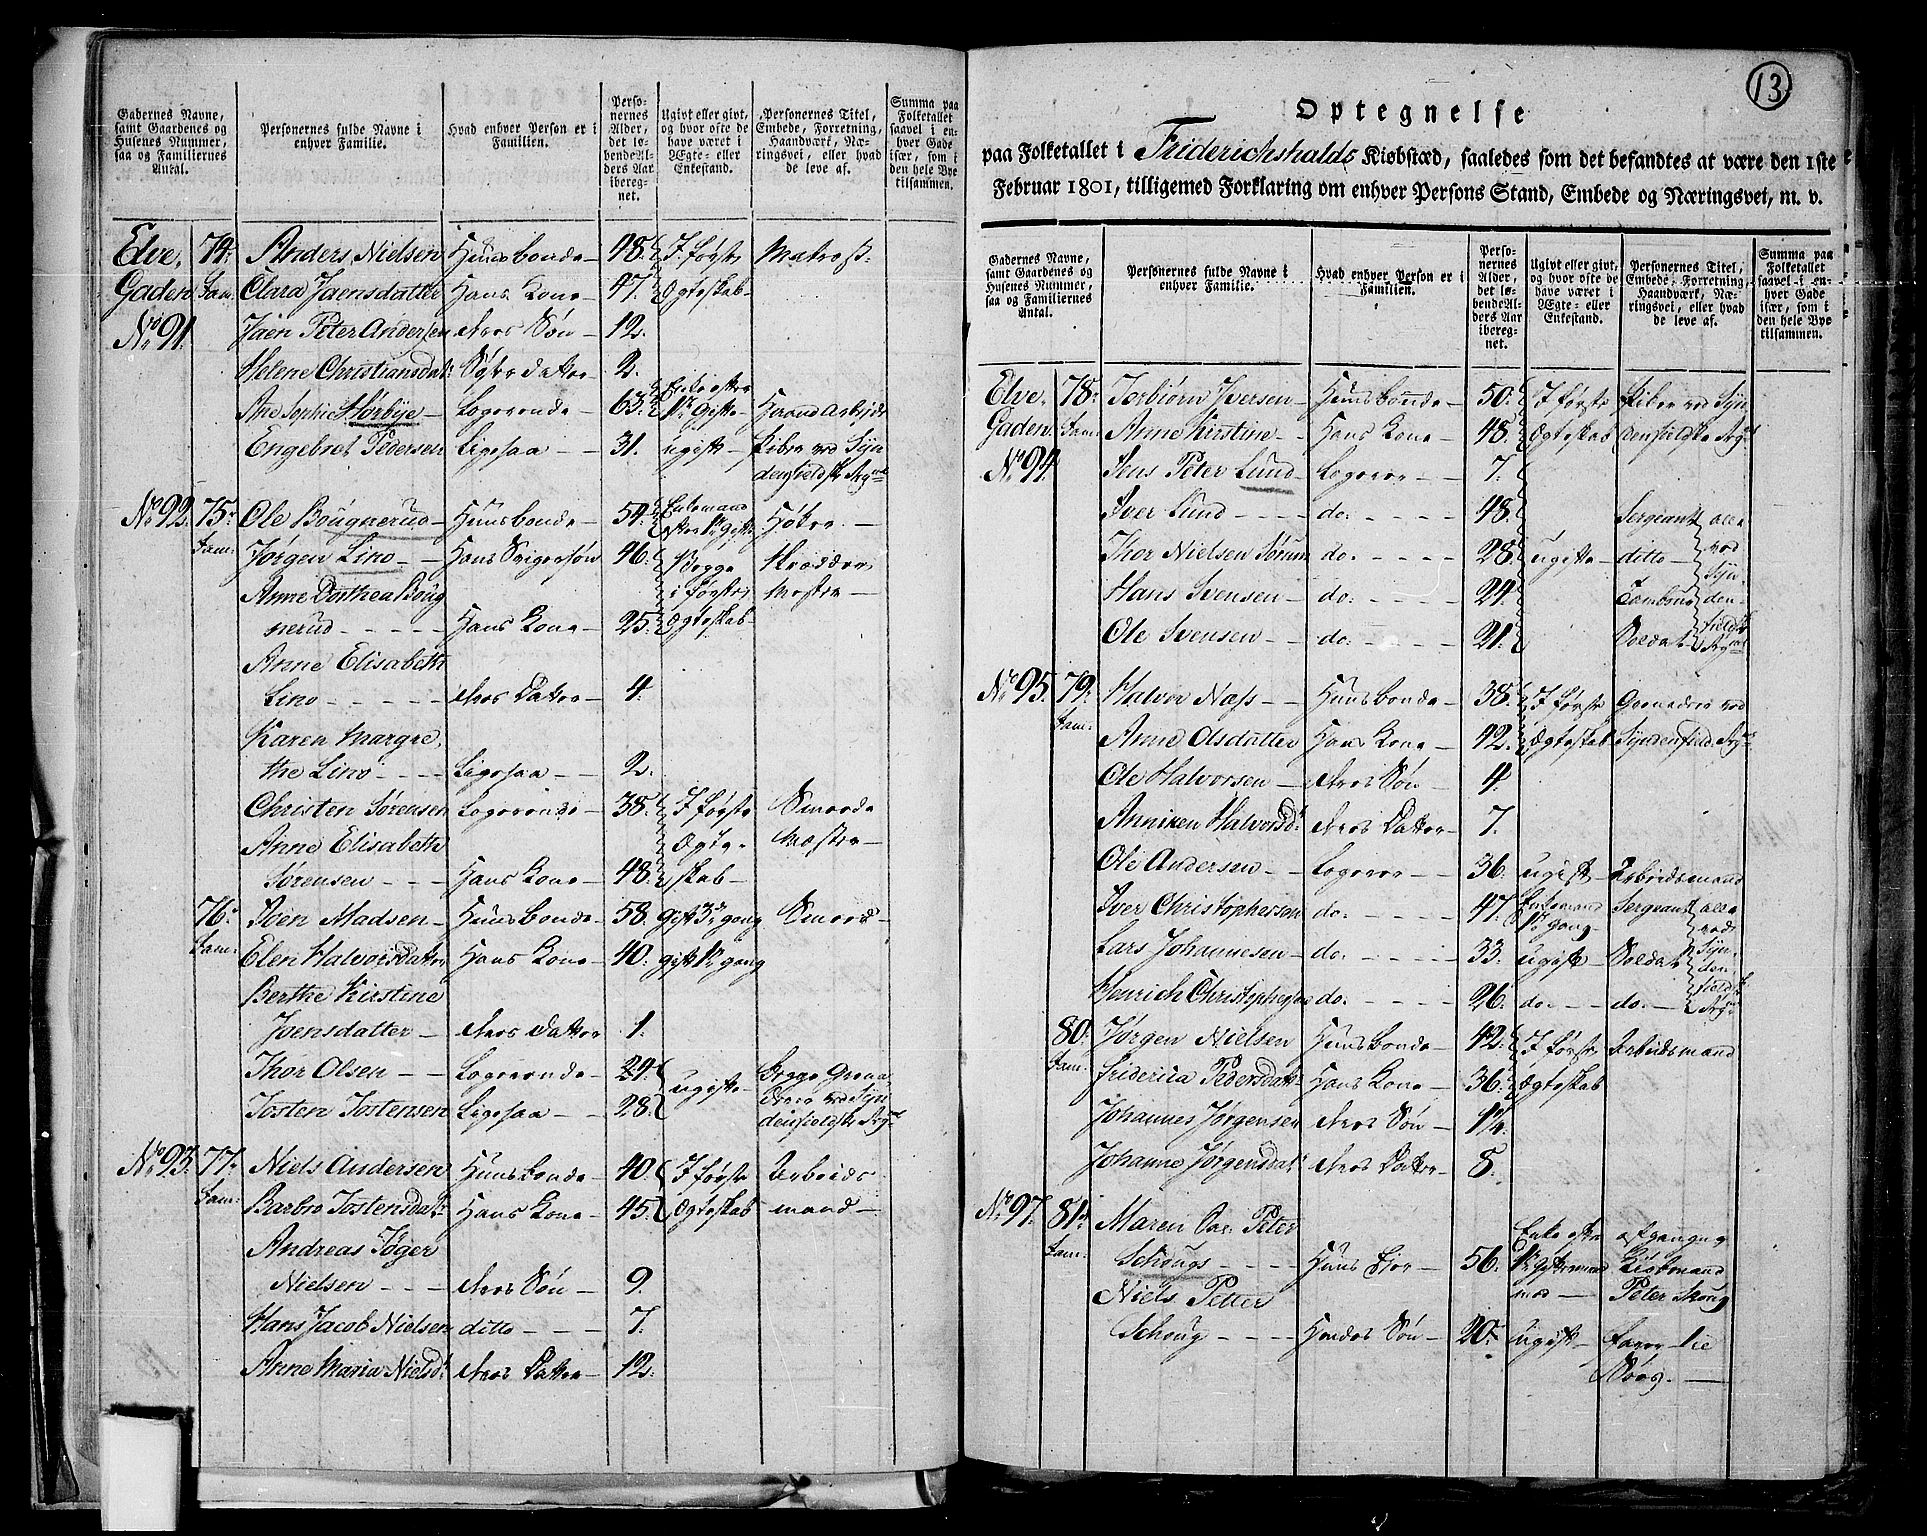 Gadernes Navne, samt Gaardenes og Husenes Nummer, saa og Familiernes Antal.
Personernes fulde Navne i enhver Familie.
Hvad enhver Person er i Familien.
Personernes Alder, det løbende Alders Aar iberegnet.
Ugivt eller givt, og hvor ofte de have været i Ægte- eller Enkestand.
Personernes Titel, Embede, Forretning, Haandværk, Næringsvei, eller hvad de leve af.
Summa paa Folketallet saavel i enhver Gade især, som i den hele Bye tilsammen.
Elve, 74. Anders Nielsen Huusbonde 48. I første Matross.
Gaden Fam. Clara Jaensdatter Hans Kone 47. Ægteskab
No 91. Jaen Peter Andersen deres Søn 12.
Helene Christiansdat: 2.
Ane Sophie Hørbye Logerende 63. 1e Gifte Haandarbejde
Engebret Pedersen Ligesaa 31. ugift
No 92. 75. Ole Bougnerud Huusbonde 54. Enkemand efter 1e Gifte Høker
Fam: Jørgen Lino Hans Svigersøn 46. Begge Skrædder
Anne Dorthea Boug i første Mester
nerud Hans Kone 25. Ægteskab
Anne Elisabeth
Lino deres Datter 4.
Karen Margre,
the Lino Ligesaa 2.
Christen Sørensen Logerende 38. I første Smede
Anne Elisabeth Ægte Mester
Sørensen Hans Kone 48. skab
76. Joen Madsen Huusbonde 58. gift 3die gang Smed
Fam: Elen Halvorsdatter Hans Kone 40. gift 1e gang
Berthe Kirstine
Joensdatter deres Datter 1.
Thor Olsen Logerende 24. ugifte Begge Grena
Tosten Tostensen Ligesaa 28. derer ved Syn
denfieldske Rgmt
No 93. 77. Niels Andersen Huusbonde 40. I første Arbeids
Fam: Barbro Tostensdat: Hans Kone 45. Ægteskab mand
Andreas Jøger
Nielsen deres Søn 9.
Hans Jacob Nielsen ditto 7.
Anne Maria Nielsd: deres Datter 12.
13
Optegnelse
paa Folketallet i Friderichshalds Kiøbstæd, saaledes som det befandtes at være den 1ste
Februar 1801, tilligemed Forklaring om enhver Persons Stand, Embede og Næringsvei, m. v.
Gadernes Navne, samt Gaardenes og Husenes Nummer, saa og Familiernes Antal.
Personernes fulde Navne i enhver Familie.
Hvad enhver Person er i Familien.
Personernes Alder, det løbende Alders Aar iberegnet.
Ugivt eller givt, og hvor ofte de have været i Ægte- eller Enkestand.
Personernes Titel, Embede, Forretning, Haandværk, Næringsvei, eller hvad de leve af.
Summa paa Folketallet saavel i enhver Gade især, som i den hele Bye tilsammen.
Elve, 78. Torbiørn Iversen Huusbonde 50. I første Piber ved Syn
Gaden Fam: Anne Kirstine Hans Kone 48. Ægteskab denfieldske Rgmt
No 94. Jens Peter Lund Logerer 7.
Iver Lund do. 48. Sergeant
Thor Nielsen Sørum do. 28. ugifte ditto
Hans Svensen do. 24. Tambour
Ole Svensen do. 21. Soldat
alle ved Syndenfieldske Rgmt
No 95. 79. Halvor Næss Huusbonde 38. I første Grenadeer ved
Fam: Anne Olsdatter Hans Kone 42. Ægteskab Syndenfield. Rgmt
Ole Halvorsen deres Søn 4.
Anniken Halvorsd: deres Datter 7.
Ole Andersen Logerer 36. ugift Arbeidsmand
Iver Christophersen do. 47. Enkemand 1e gang Sergeant
Lars Johannesen do. 33. ugift Soldat
Henrich Christophersen do. 26. do. do.
alle ved Syndenfieldske Rgmt
80. Jørgen Nielsen Huusbonde 42. I første Arbeidsmand
Fam: Friderica Pedersdatt: Hans Kone 36. Ægteskab
Johannes Jørgensen deres Søn 14.
Johanne Jørgensdat: deres Datter 8.
No 97. 81. Maren Peter
Fam: Schougs 56. Enke efter 1e afgangne Kiøbmand Peter Skoug
Niels Petter
Schoug Hendes Søn 20. ugift farer til Søes.